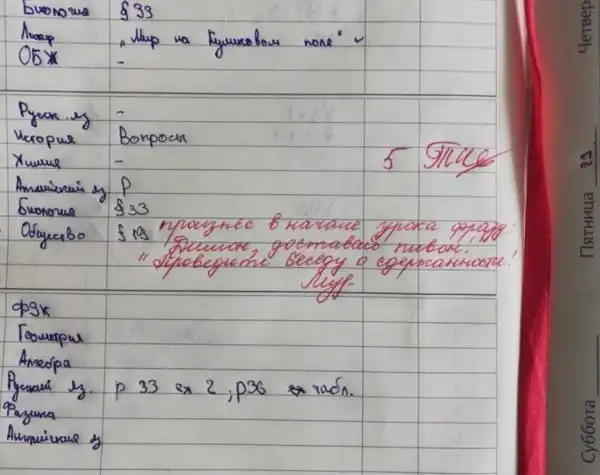 Биология § 33
Литер „Мир на Куликовом поле"
ОБЖ -
Четверг
Русск. яз -
История Вопросы
Химия -
5
Английский яз р
Биология §33
Общество § 19
произнёс в начале урока фразу:
"Димон, доставай пивон!"
Проведите беседу о сдержанности!
Пятница 29
ФЗК
Геометрия
Алгебра
Русский яз. р 33 сл 2, р36 табл.
Физика
Английский яз
Суббота